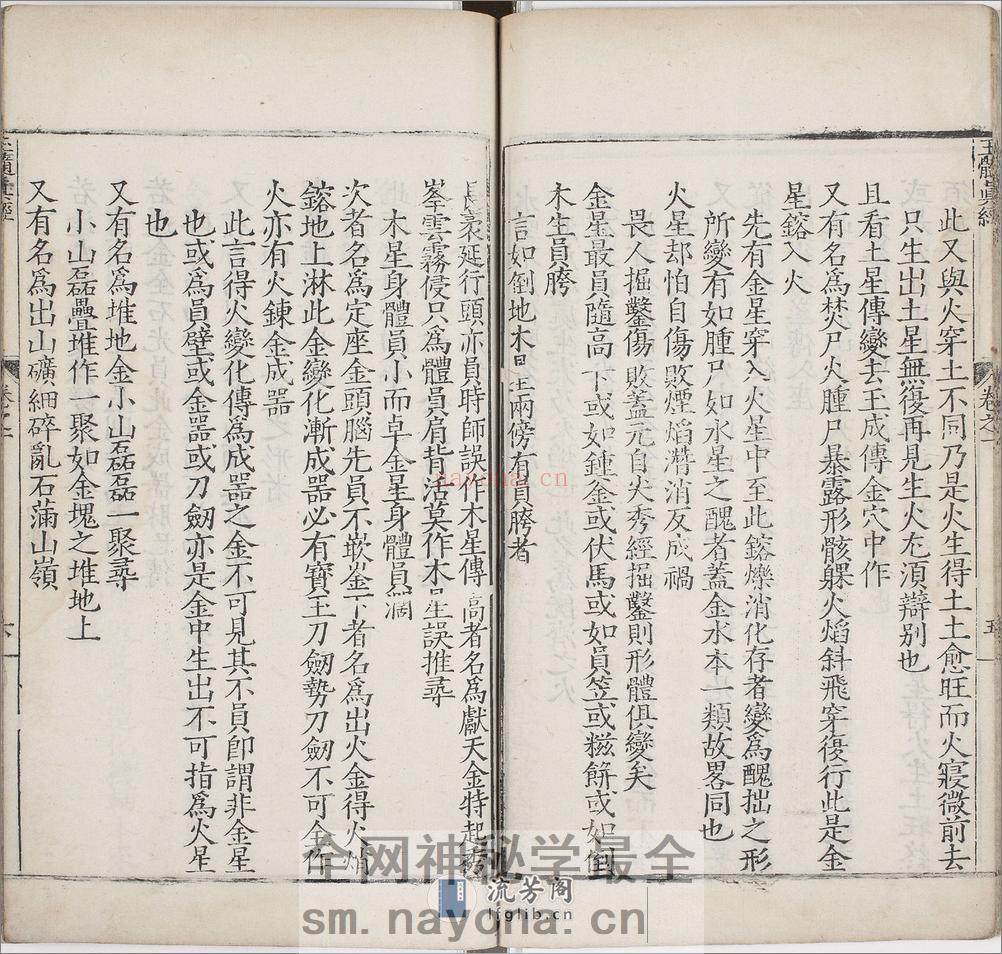 此又與火穿土不同乃是火生得土土愈旺而火寢微前去
只生出土星無復再見生火尤須辯别也
且看土星傳變去土成傳金穴中作
又有名爲焚尸火腫尸暴露形骸躶火焰斜飛穿復行此是金
星鎔入火
先有金星穿入火星中至此鎔爍消化存者變爲醜拙之形
所變有如腫尸如水星之醜者蓋金水本一類故畧同也
火星却怕自傷敗煙焰潛消反成禍
畏人掘鑿傷敗蓋元自尖秀經掘鑿則形體俱變矣
金星最員隨高下或如鍾釜或伏馬或如員笠或糍餅或如倒
木生員胯
言如倒地木星兩傍有員胯者
卷之一
五
長裹延行頭亦員時師誤作木星傳高者名爲獻天金特起秀
峯雲霧侵只爲體員肩背活莫作木星誤推尋
木星身體員小而卓金星身體員濶
次者名爲定座金頭腦先員不嵌崟下者名爲出火金得火焰
鎔地上淋此金變化漸成器必有寶玉刀劒勢刀劒不可全作
火亦有火鍊金成器
此言得火變化傳爲成器之金不可見其不員卽謂非金星
也或爲員壁或金器或刀劒亦是金中生出不可指爲火星
也
又有名爲堆地金小山磊磊一聚尋
小山磊疊堆作一聚如金塊之堆地上
又有名爲出山礦細碎亂石滿山嶺
nayona.cn
全网神秘学最全
流芳阁
lfglib.cn
sm.nayona.cn